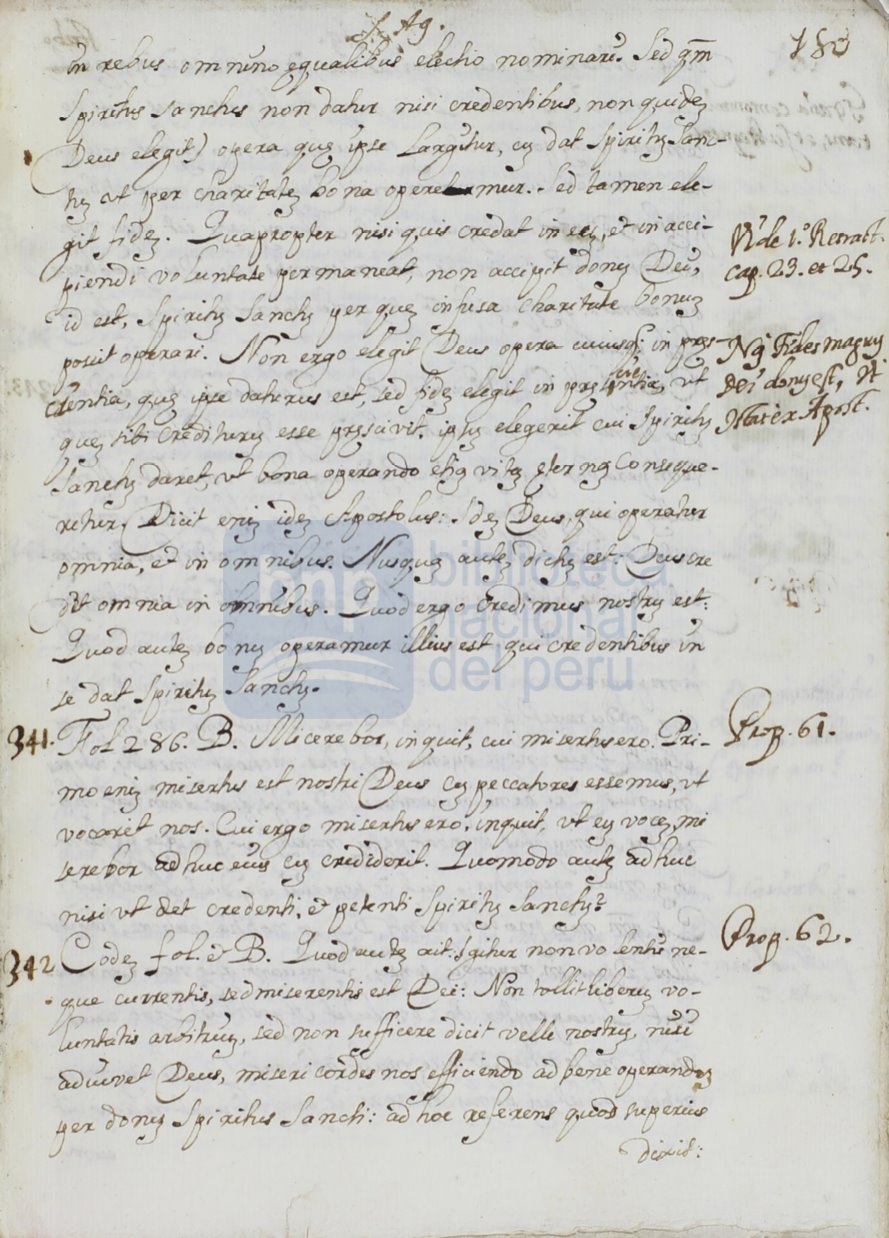 S. Ag.
180
in rebus omnino equalibus electio nominari. Sed qm̃
Spiritus Sanctus non datur nisi credentibus, non quidẽ
Deus elegit) opera quę ipse Largitur, cũ dat Spiritũ San-
tũ vt per charitatẽ bona operemur. Sed tamen ele-
git fidẽ. Quapropter nisi quis credat in eũ, et in acci-
piendi voluntate permaneat, non accipit donũ Dei,
id est, Spiritũ Sanctũ per quẽ infusa charitate bonũ
posit operari. Non ergo elegit Deus opera cuiusq̃ in pręs-
cientia, quę ipse daturus est, sed fidẽ elegit in pręscientia, vt
quẽ sibi crediturũ esse pręscivit. ipsũ elegerit cui Spiritũ
Sanctũ daret, vt bona operando etiã vitã ęternã conseque-
retur. Dicit enĩ idẽ Apostolus: Idẽ Deus, qui operatur
omnia, et in omnibus. Nusquã autẽ dictũ est: Deus cre
dit omnia in omnibus. Quod ergo credimus nostrũ est:
Quod autẽ bonũ operamur illius est, qui credentibus in
se dat Spiritũ Sanctũ.
Vide 1.º Retract.
cap. 23. et 25.
Nq̃ Fides magnũ
Dei donũ est, vt
ex Apost.
341. Fol 286. B. Micerebor, inquit, cui misertus ero. Pri-
Prop. 61.
mo enĩ misertus est nostri Deus cũ peccatores essemus, vt
vocaret nos. Cui ergo misertus ero, inquit, vt eũ vocẽ, mi
serebor adhuc eius cũ crediderit. Quomodo autẽ adhuc
nisi vt det credenti, et petenti Spiritũ Sanctũ?
342 Eodẽ fol. et B. Quod autẽ ait: Igitur non volentis ne-
Prop. 62.
que currentis, sed miserentis est Dei: Non tollit liberũ vo-
luntatis arbitriũ, sed non sufficere dicit velle nostrũ, nisi
adiuvet Deus, misericordes nos efficiendo ad bene operandũ
per donũ Spiritus Sancti: ad hoc referens quod superius
dixit:
bnp biblioteca
nacional
del perú